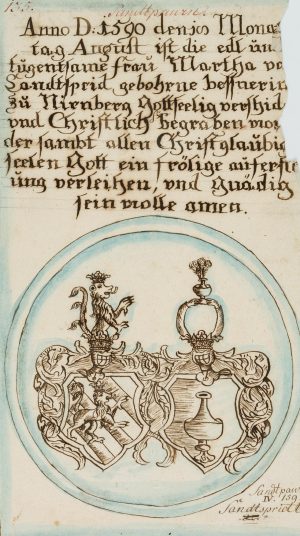 155.
Sandtpaurn
Anno D: 1590 den 10 Mona
tag August ist die edl ŭn
tugentsame frau Martha vo
Sandtsprid gebohrne heffnerin
zŭ Nirnberg Gottseelig verschid
vnd Christlich begraben wor
der sambt allen Christglaubig
seelen Gott ein frölige aufersteh
ung verleihen, vnd gnädig
sein wolle amen.
Sandtpaw
IV: 159
Sandtspridt